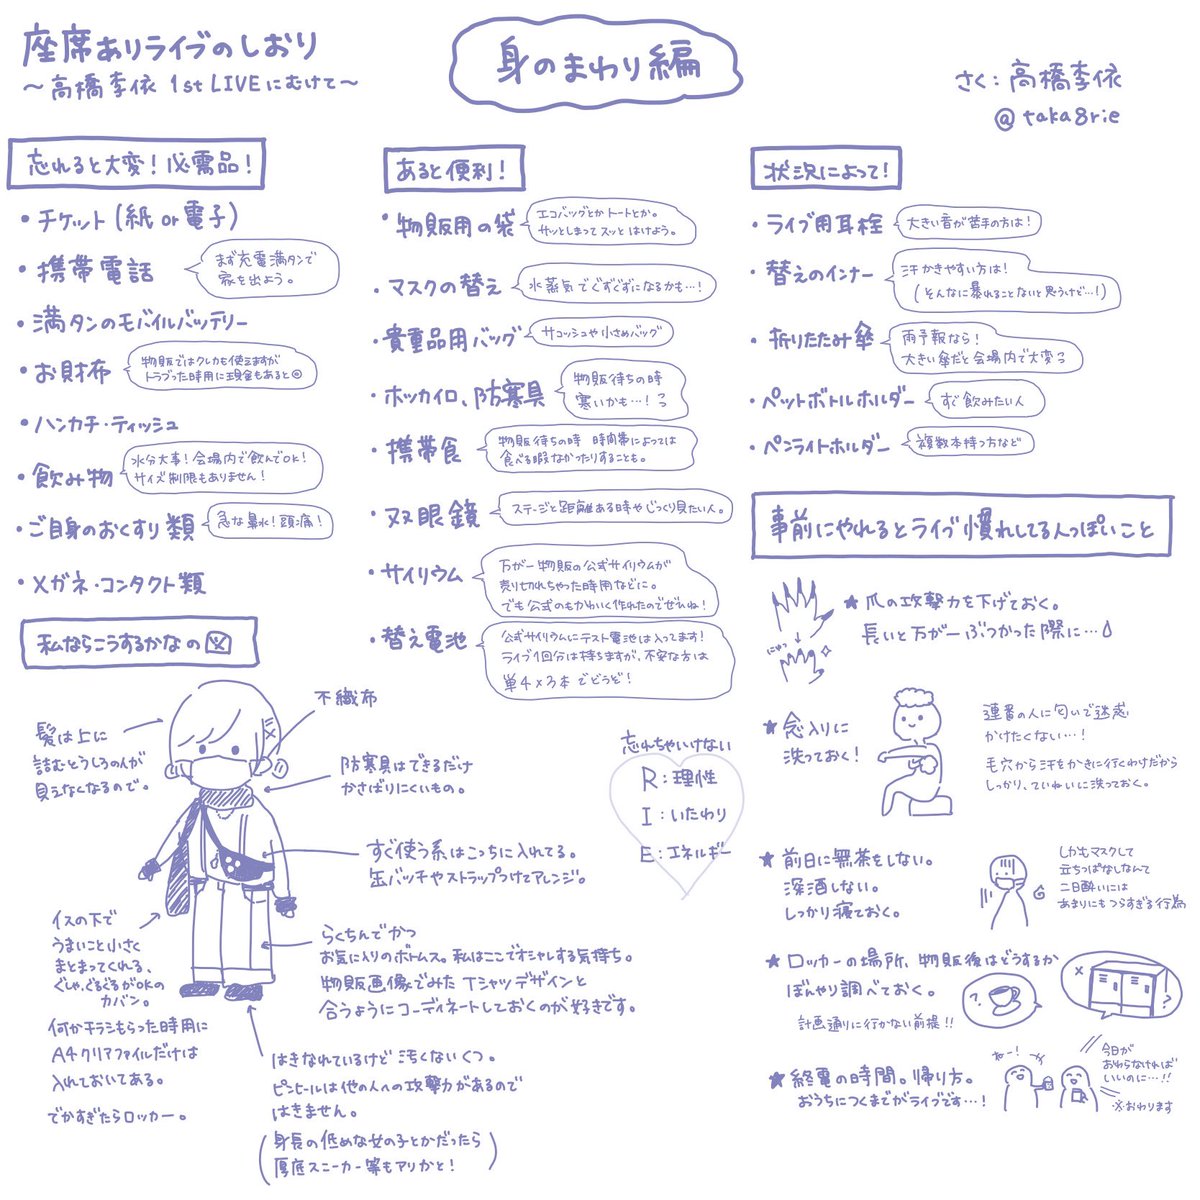 座席ありライブのしおり
～高橋李依 1st LIVEにむけて～
身のまわり編
さく：高橋李依
@taka8rie
忘れると大変！必需品！
・チケット(紙or電子)
・携帯電話
まず充電満タンで
家を出よう。
・満タンのモバイルバッテリー
・お財布
物販ではクレカも使えますが
トラブった時用に現金もあると◎
・ハンカチ・ティッシュ
・飲み物
水分大事！会場内で飲んでOK！
サイズ制限もありません！
・ご自身のおくすり類
急な鼻水！頭痛！
・メガネ・コンタクト類
あると便利！
・物販用の袋
エコバッグとかトートとか。
サッとしまってスッとはけよう。
・マスクの替え
水蒸気でぐずぐずになるかも…！
・貴重品用バッグ
サコッシュや小さめバッグ
・ホッカイロ、防寒具
物販待ちの時
寒いかも…！
・携帯食
物販待ちの時 時間帯によっては
食べる暇なかったりすることも。
・双眼鏡
ステージと距離ある時やじっくり見たい人。
・サイリウム
万が一物販の公式サイリウムが
売り切れちゃった時用などに。
でも公式のもかわいく作れたのでぜひね！
・替え電池
公式サイリウムにテスト電池は入ってます！
ライブ1回分は持ちますが、不安な方は
単4×3本でどうぞ！
状況によって！
・ライブ用耳栓
大きい音が苦手の方は！
・替えのインナー
汗かきやすい方は！
(そんなに暴れることないと思うけど…！)
・折りたたみ傘
雨予報なら！
大きい傘だと会場内で大変っ
・ペットボトルホルダー
すぐ飲みたい人
・ペンライトホルダー
複数本持つ方など
事前にやれるとライブ慣れしてる人っぽいこと
★爪の攻撃力を下げておく。
長いと万が一ぶつかった際に…
★念入りに
洗っておく！
連番の人に匂いで迷惑
かけたくない…！
毛穴から汗をかきに行くわけだから
しっかり、ていねいに洗っておく。
★前日に無茶をしない。
深酒しない。
しっかり寝ておく。
しかもマスクして
立ちっぱなしなんて
二日酔いには
あまりにもつらすぎる行為
★ロッカーの場所、物販後はどうするか
ぼんやり調べておく。
計画通りに行かない前提!!
★終電の時間。帰り方。
おうちにつくまでがライブです…！
ねー！
今日が
おわらなければ
いいのに…!!
・※おわります
私ならこうするかなの図
髪は上に
詰むとうしろの人が
見えなくなるので。
不織布
防寒具はできるだけ
かさばりにくいもの。
すぐ使う系はこっちに入れてる。
缶バッチやストラップつけてアレンジ。
イスの下で
うまいこと小さく
まとまってくれる、
ぐしゃ、ぐるぐるがOKの
カバン。
何かチラシもらった時用に
A4クリアファイルだけは
入れておいてある。
でかすぎたらロッカー。
らくちんでかつ
お気に入りのボトムス。私はここでオシャレする気持ち。
物販画像でみたTシャツデザインと
合うようにコーディネートしておくのが好きです。
はきなれているけど汚くないくつ。
ピンヒールは他の人への攻撃力があるので
はきません。
(身長の低めな女の子とかだったら
厚底スニーカー等もアリかと！)
忘れちゃいけない
R：理性
I：いたわり
E：エネルギー